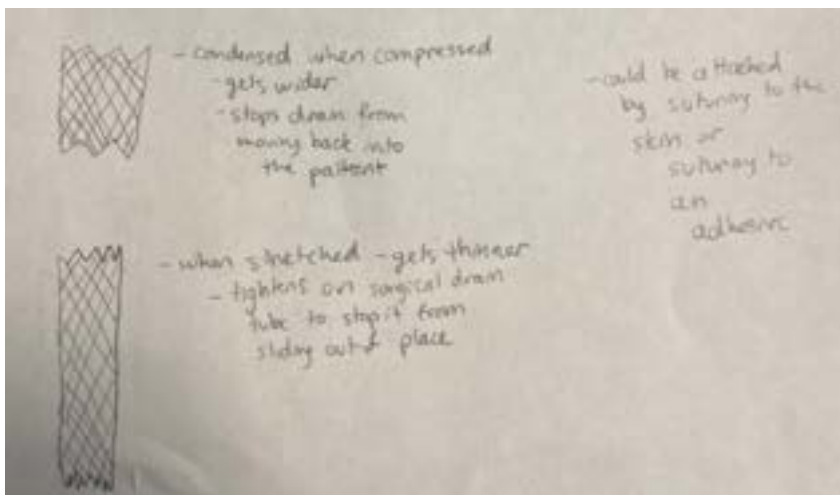 - condensed when compressed
- gets wider
- stops drain from
moving back into
the patient
- could be attached
by suturing to the
skin or
suturing to
an
adhesive
- when stretched - gets thinner
- tightens on surgical drain
tube to stop it from
sliding out of place